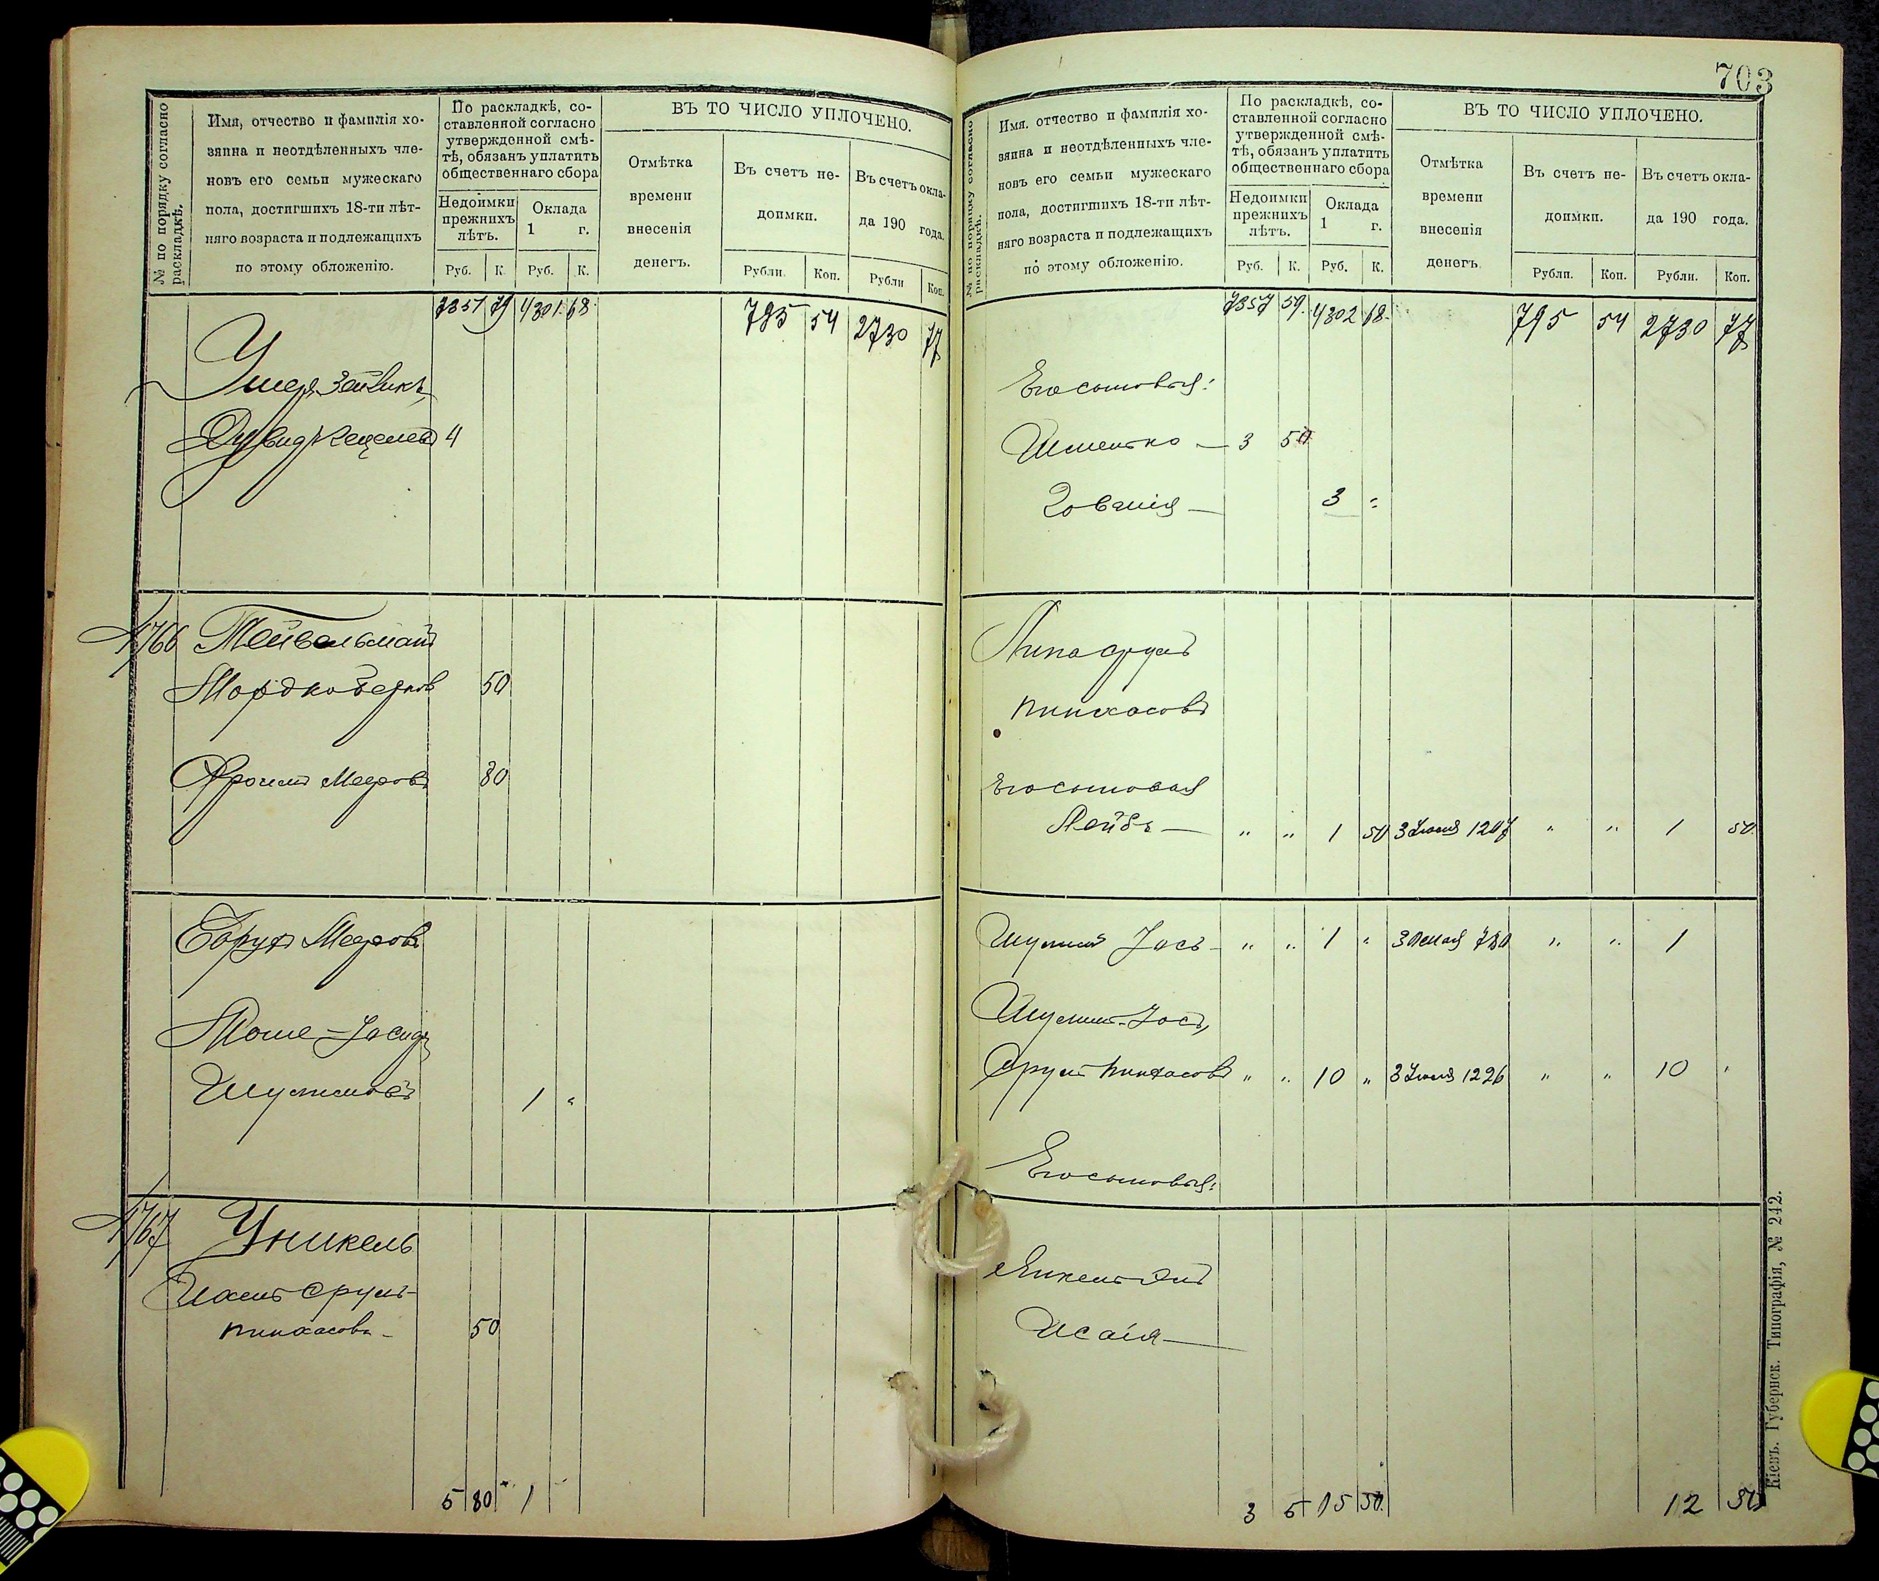 703
№ по порядку согласно раскладкѣ.
Имя, отчество и фамилія хо-
зяина и неотдѣленныхъ чле-
новъ его семьи мужескаго
пола, достигшихъ 18-ти лѣт-
няго возраста и подлежащихъ
по этому обложенію.
По раскладкѣ, со-
ставленной согласно
утвержденной смѣ-
тѣ, обязанъ уплатить
общественнаго сбора
Недоимки
прежнихъ
лѣтъ.
Оклада
1 г.
Руб. К. Руб. К.
ВЪ ТО ЧИСЛО УПЛОЧЕНО.
Отмѣтка
времени
внесенія
денегъ.
Въ счетъ не-
доимки.
Рубли. Коп.
Въ счетъ окла-
да 190 года.
Рубли Коп.
7351 79 4301 68 795 54 2730 77
Умеръ
4
1766 Тейвельманъ
Мордко 50
Мееровъ 80
Борухъ Мееровъ
Моше-Іосифъ
Шулимовъ 1 "
1767 Уникель
Срулъ-
Пинхасовъ- 50
5 80 1
№ по порядку согласно раскладкѣ.
Имя, отчество и фамилія хо-
зяина и неотдѣленныхъ чле-
новъ его семьи мужескаго
пола, достигшихъ 18-ти лѣт-
няго возраста и подлежащихъ
по этому обложенію.
По раскладкѣ, со-
ставленной согласно
утвержденной смѣ-
тѣ, обязанъ уплатить
общественнаго сбора
Недоимки
прежнихъ
лѣтъ.
Оклада
1 г.
Руб. К. Руб. К.
ВЪ ТО ЧИСЛО УПЛОЧЕНО.
Отмѣтка
времени
внесенія
денегъ.
Въ счетъ не-
доимки.
Рубли. Коп.
Въ счетъ окла-
да 190 года.
Рубли. Коп.
7357 59 4302 68 795 54 2730 77
Его сыновья:
3 50
3 "
Липа Сруль
Пинхасовъ
Его сыновья
Лейбъ — " " 1 50 3 Іюля 1207 " " 1 50
Шулимъ Іось - " " 1 " " " 1
Шулимъ-Іось,
Сруль Пинхасовъ " " 10 " 3 Іюля 1226 " " 10
Его сыновья:
Исаія —
3 5 15 50 12 50
Кіевъ. Губернск. Типографія, № 242.